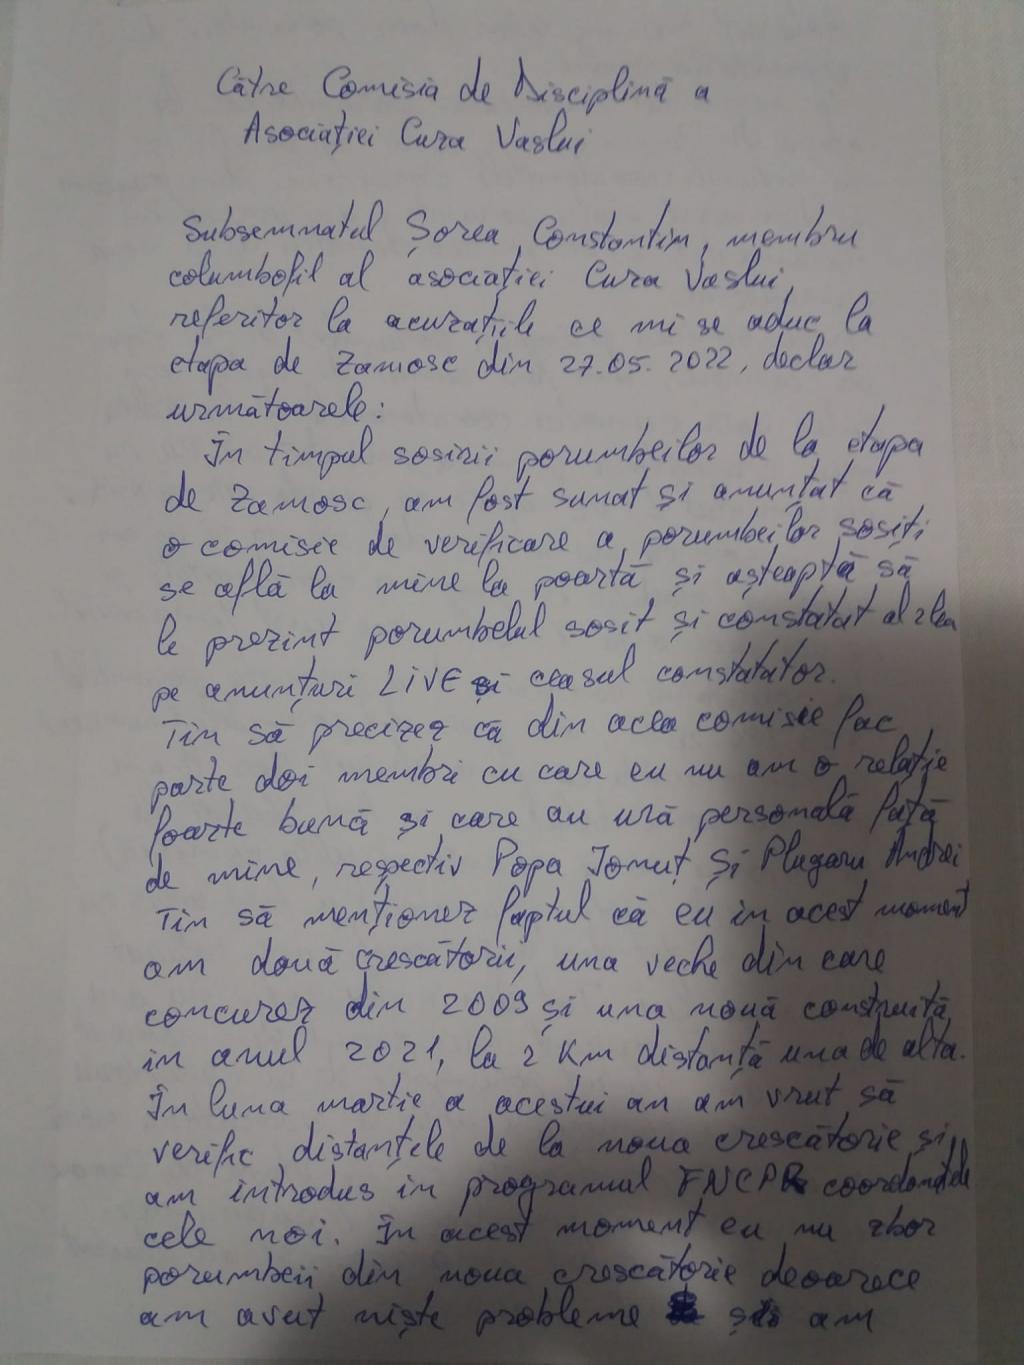 Către Comisia de Disciplină a
Asociației Cura Vaslui
Subsemnatul Șorea Constantin, membru
columbofil al asociației Cura Vaslui,
referitor la acuzațiile ce mi se aduc la
etapa de Zamosc din 27.05.2022, declar
următoarele:
În timpul sosirii porumbeilor de la etapa
de Zamosc, am fost sunat și anunțat că
o comisie de verificare a porumbeilor sosiți
se află la mine la poartă și așteaptă să
le prezint porumbelul sosit și constatat al 2lea
pe anunțuri LIVE și ceasul constatator.
Tin să precizez că din acea comisie fac
parte doi membri cu care eu nu am o relație
foarte bună și care au ură personală față
de mine, respectiv Popa Ionuț și Plugaru Andrei
Tin să menționez faptul că eu in acest moment
am două crescătorii, una veche din care
concurez din 2009 și una nouă construită
in anul 2021, la 2 Km distanță una de alta.
În luna martie a acestui an am vrut să
verific distanțele de la noua crescătorie și
am introdus in programul FNCPR coordonatele
cele noi. În acest moment eu nu zbor
porumbeii din noua crescătorie deoarece
am avut niște probleme și am